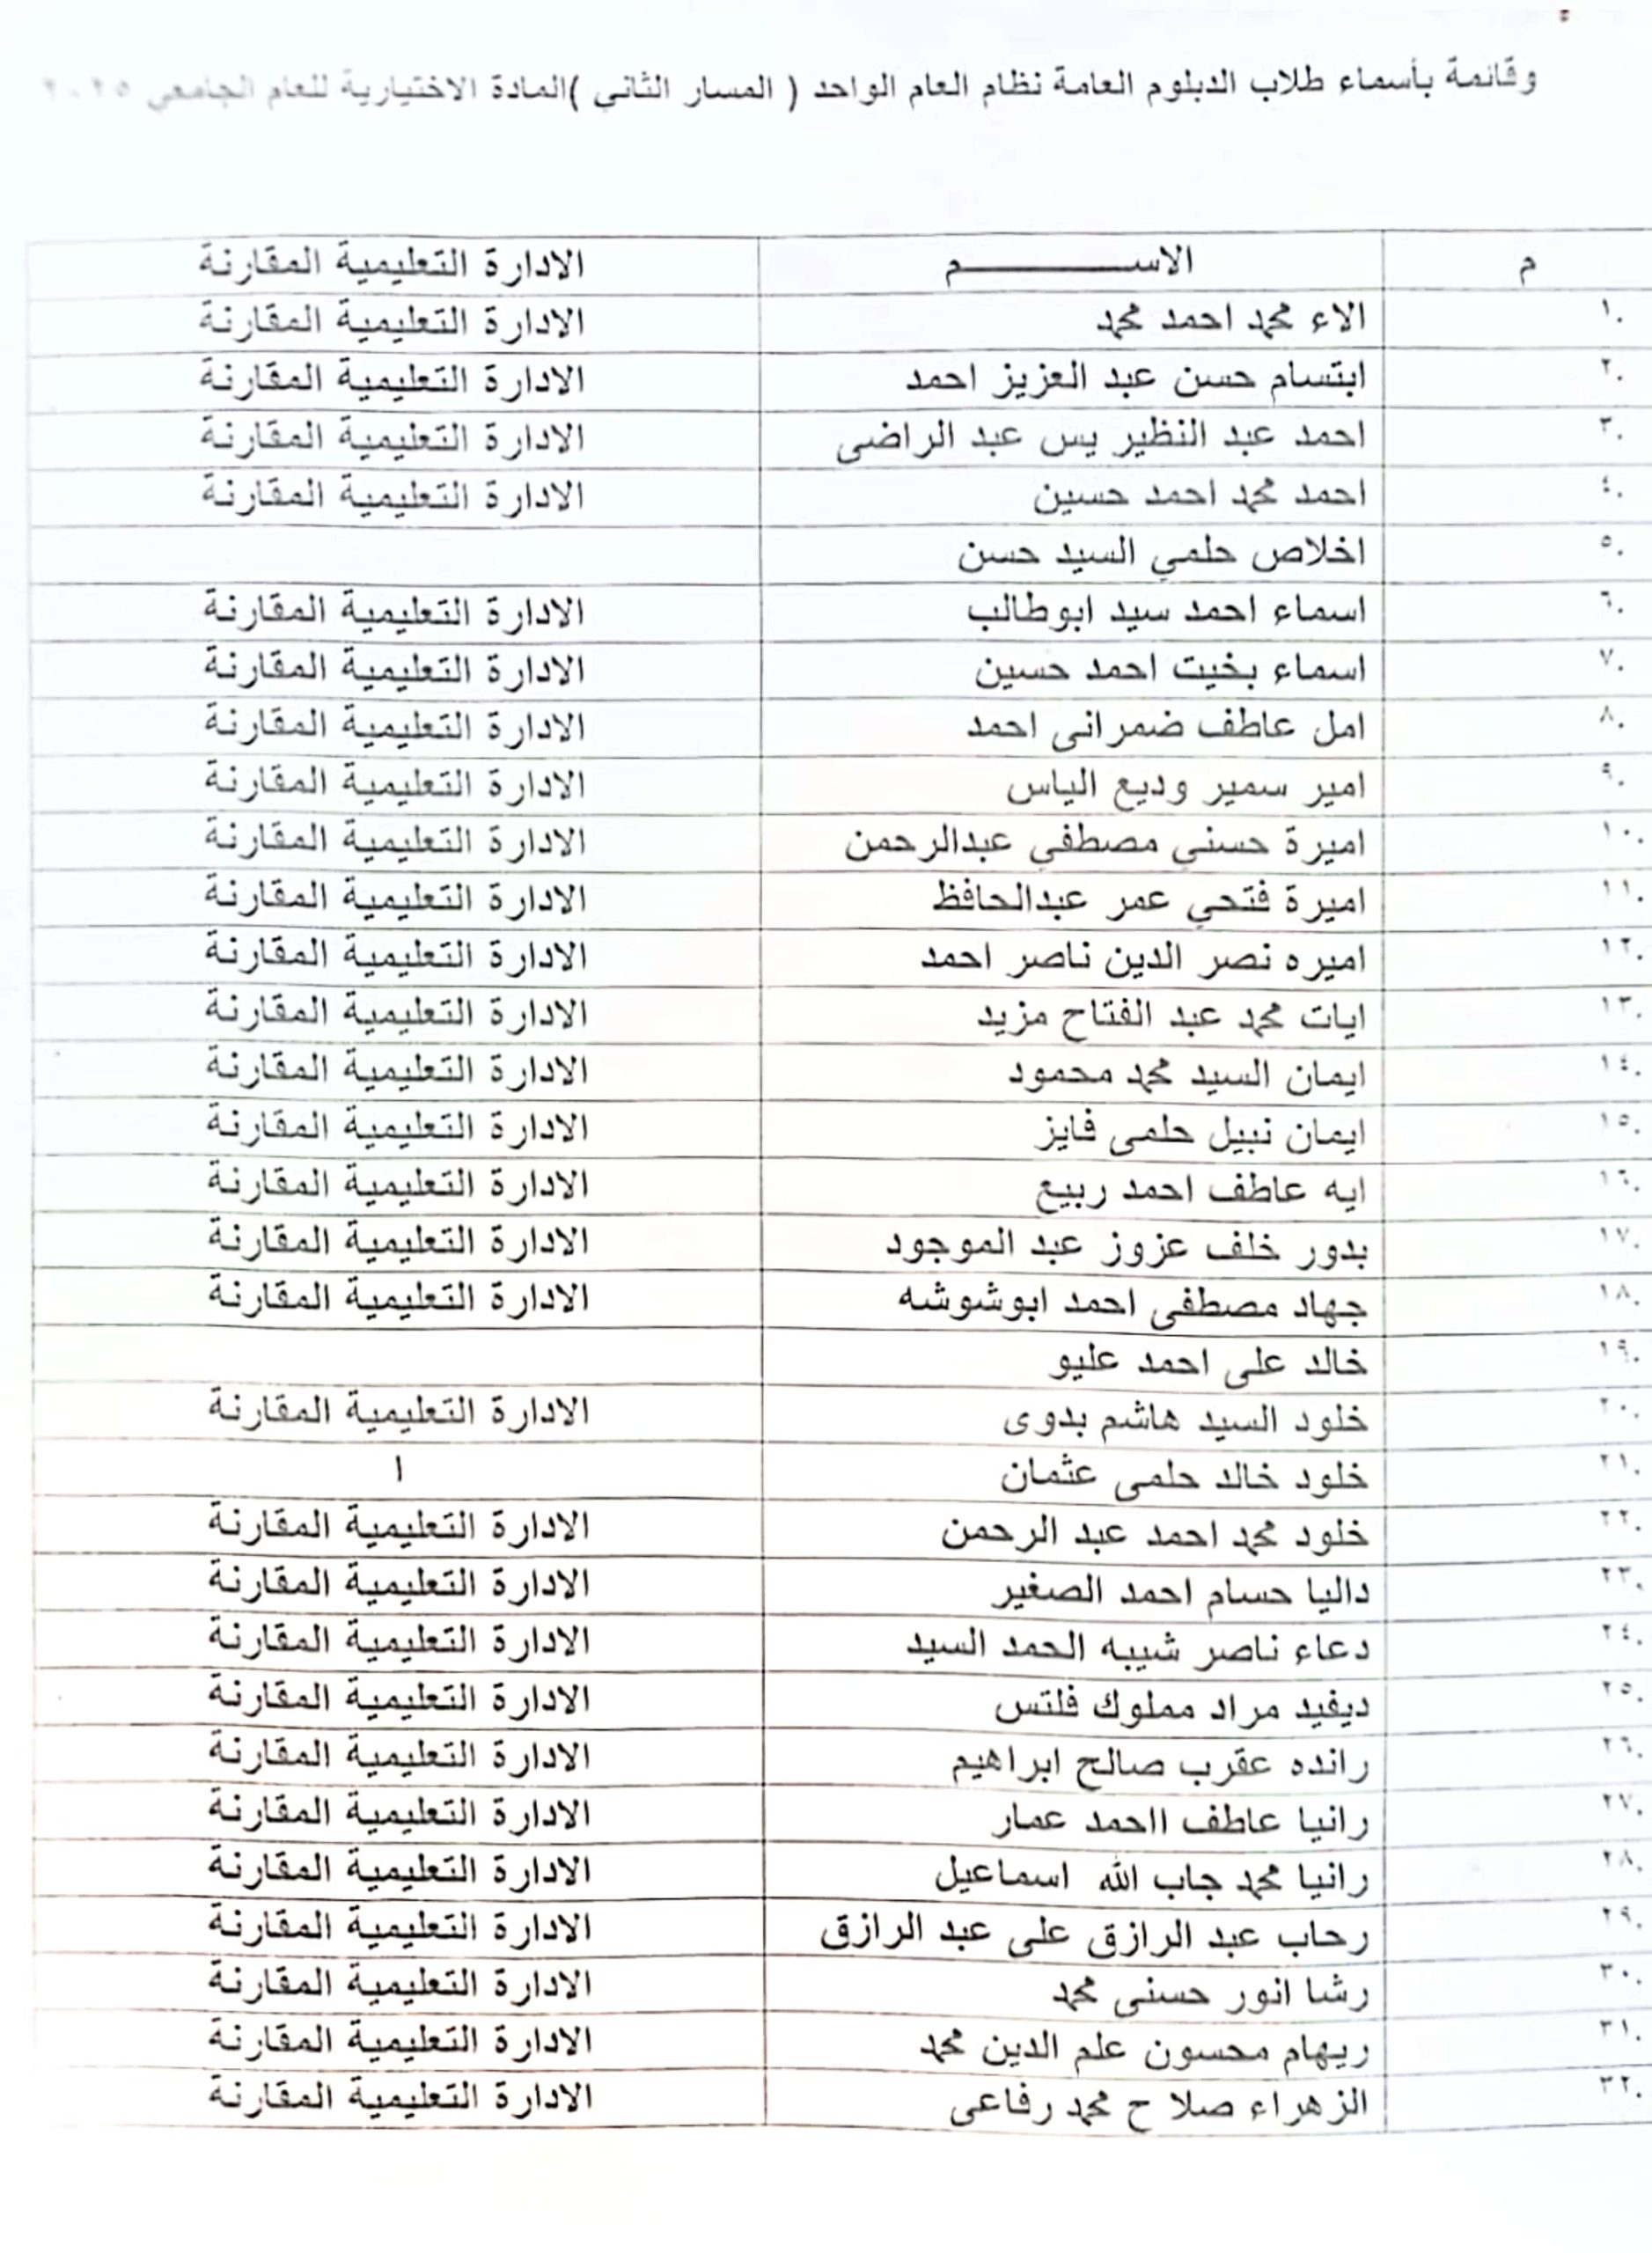 وقائمة بأسماء طلاب الدبلوم العامة نظام العام الواحد ( المسار الثانى )المادة الاختيارية للعام الجامعي ٢٠٢٥
م الاســـــــــم الادارة التعليمية المقارنة
١. الاء محمد احمد محمد الادارة التعليمية المقارنة
٢. ابتسام حسن عبد العزيز احمد الادارة التعليمية المقارنة
٣. احمد عبد النظير يس عبد الراضى الادارة التعليمية المقارنة
٤. احمد محمد احمد حسين الادارة التعليمية المقارنة
٥. اخلاص حلمي السيد حسن
٦. اسماء احمد سيد ابوطالب الادارة التعليمية المقارنة
٧. اسماء بخيت احمد حسين الادارة التعليمية المقارنة
٨. امل عاطف ضمرانى احمد الادارة التعليمية المقارنة
٩. امير سمير وديع الياس الادارة التعليمية المقارنة
١٠. اميرة حسني مصطفي عبدالرحمن الادارة التعليمية المقارنة
١١. اميرة فتحي عمر عبدالحافظ الادارة التعليمية المقارنة
١٢. اميره نصر الدين ناصر احمد الادارة التعليمية المقارنة
١٣. ايات محمد عبد الفتاح مزيد الادارة التعليمية المقارنة
١٤. ايمان السيد محمد محمود الادارة التعليمية المقارنة
١٥. ايمان نبيل حلمى فايز الادارة التعليمية المقارنة
١٦. ايه عاطف احمد ربيع الادارة التعليمية المقارنة
١٧. بدور خلف عزوز عبد الموجود الادارة التعليمية المقارنة
١٨. جهاد مصطفى احمد ابوشوشه الادارة التعليمية المقارنة
١٩. خالد على احمد عليو
٢٠. خلود السيد هاشم بدوى الادارة التعليمية المقارنة
٢١. خلود خالد حلمى عثمان ا
٢٢. خلود محمد احمد عبد الرحمن الادارة التعليمية المقارنة
٢٣. داليا حسام احمد الصغير الادارة التعليمية المقارنة
٢٤. دعاء ناصر شيبه الحمد السيد الادارة التعليمية المقارنة
٢٥. ديفيد مراد مملوك فلتس الادارة التعليمية المقارنة
٢٦. رانده عقرب صالح ابراهيم الادارة التعليمية المقارنة
٢٧. رانيا عاطف ااحمد عمار الادارة التعليمية المقارنة
٢٨. رانيا محمد جاب الله اسماعيل الادارة التعليمية المقارنة
٢٩. رحاب عبد الرازق على عبد الرازق الادارة التعليمية المقارنة
٣٠. رشا انور حسنى محمد الادارة التعليمية المقارنة
٣١. ريهام محسون علم الدين محمد الادارة التعليمية المقارنة
٣٢. الزهراء صلا ح محمد رفاعى الادارة التعليمية المقارنة